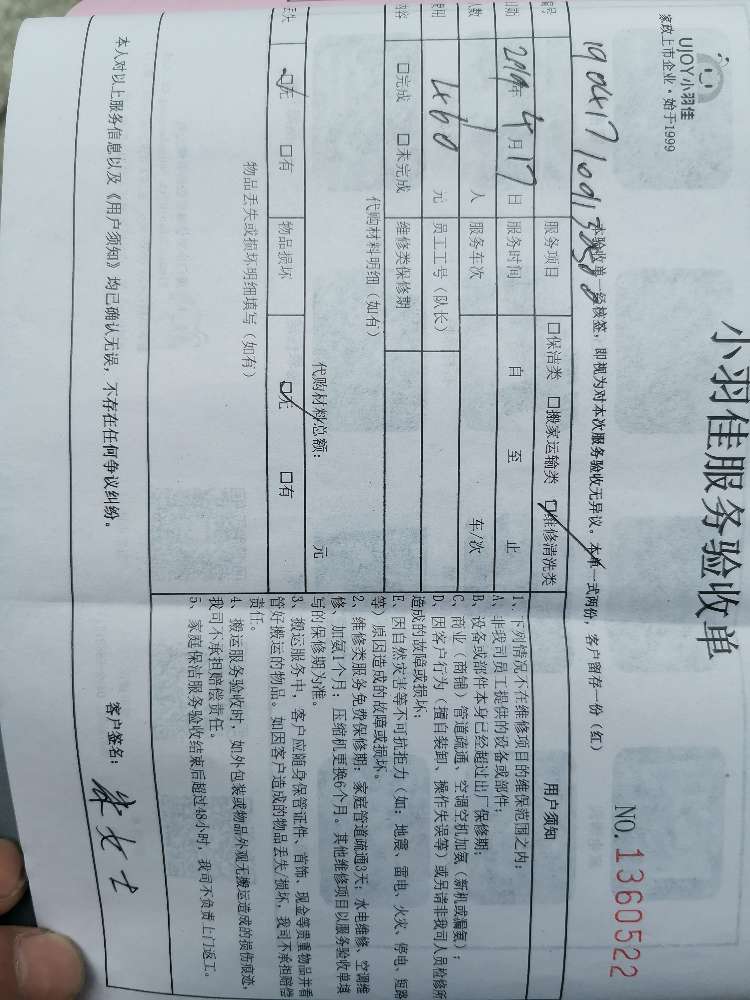 UJOY小羽佳
家政上市企业·始于1999
小羽佳服务验收单
NO. 1360522
本验收单一经核签，即视为对本次服务验收无异议。本单一式两份，客户留存一份（红）
服务项目 □保洁类 □搬家运输类 □维修清洗类
日期 2019年4月17日 服务时间 自 至 止
人数 1人 服务车次 车/次
费用 1×60元 员工工号（队长）
内容 □完成 □未完成 维修类保修期
代购材料明细（如有）
代购材料总额： 元
丢失 □无 □有 物品损坏 □无 □有
物品丢失或损坏明细填写（如有）
用户须知
1、下列情况不在维修项目的维保范围之内：
A、非我司员工提供的设备或部件；
B、设备或部件本身已经超过出厂保修期；
C、商业（商铺）管道疏通、空调空机加氨（新机或漏氨）；
D、因客户行为（擅自装卸、操作失误等）或另请非我司人员检修所
造成的故障或损坏；
E、因自然灾害等不可抗拒力（如：地震、雷电、火灾、停电、短路
等）原因造成的故障或损坏。
2、维修类服务免费保修期：家庭管道疏通3天；水电维修、空调维
修、加氨1个月；压缩机更换6个月。其他维修项目以服务验收单填
写的保修期为准。
3、搬运服务中，客户应随身保管证件、首饰、现金等贵重物品并看
管好搬运的物品。如因客户造成的物品丢失/损坏，我司不承担赔偿
责任。
4、搬运服务验收时，如外包装或物品外观无搬运造成的损伤痕迹，
我司不承担赔偿责任。
5、家庭保洁服务验收结束后超过48小时，我司不负责上门返工。
本人对以上服务信息以及《用户须知》均已确认无误，不存在任何争议纠纷。
客户签名：
女士